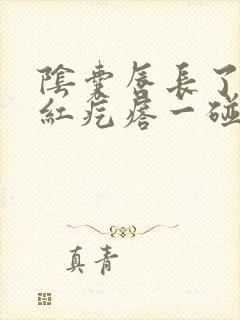 陰囊唇長了
紅疙瘩一碰
真青